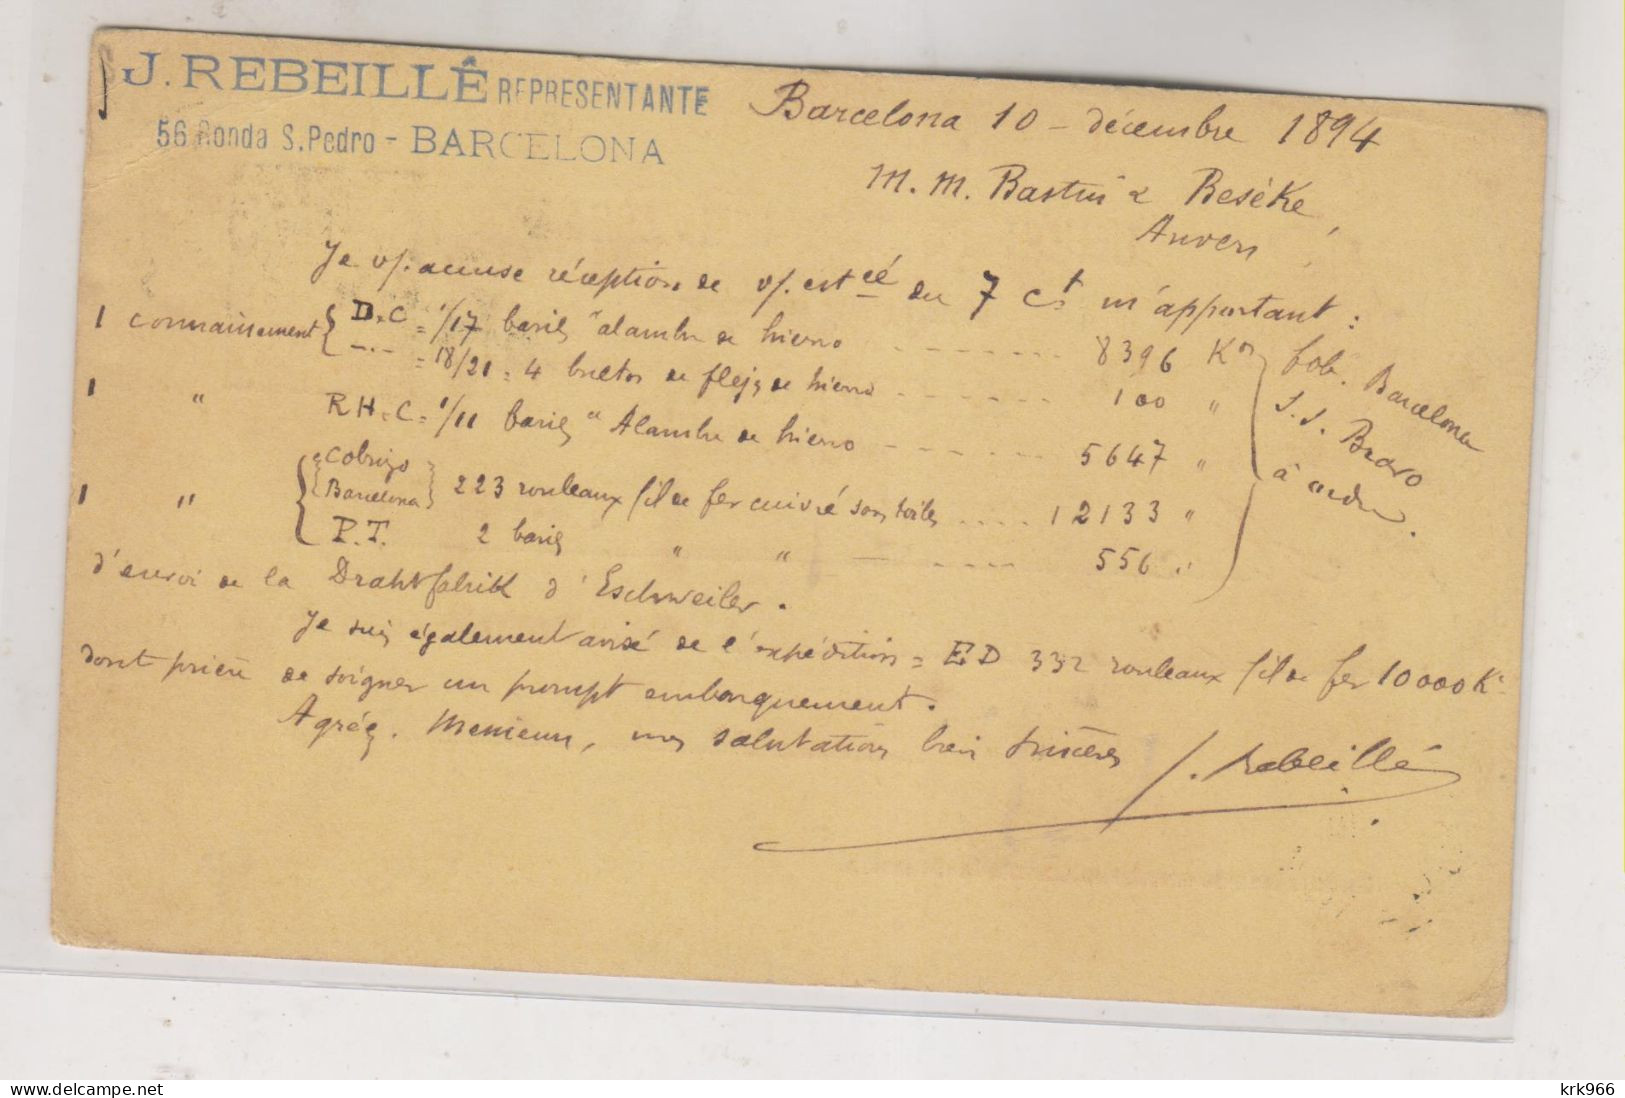 J. REBEILLÉ REPRESENTANTE
56 Ronda S. Pedro - BARCELONA
Barcelona 10 - décembre 1894
M. M. Bastin & Beséke,
Anvers
Je v/. accuse réception de v/. estcé du 7 ct m'apportant :
1 connaissement { D.C = 1/17 barils "alambre de hierro - - - - - - 8396 Kos
—.— = 18/21 = 4 bultos de fleje de hierro - - - - - - 100 "
1 " R H. C = 1/11 barils " Alambre de hierro - - - - - - 5647 "
1 " { Cobrizo Barcelona } 223 rouleaux fil de fer cuivré sans toiles .... 12133 "
P. T. 2 barils " " — - - - - 556 "
fob. Barcelona
S. S.
à ordre.
d'envoi de la Drahtfabrik d'Eschweiler.
Je suis également avisé de l'expédition = E D 332 rouleaux fil de fer 10000 Ks
dont prière de soigner un prompt embarquement.
Agréez. Messieurs, mes salutations bien sincères
J. Rebeillé
krk966